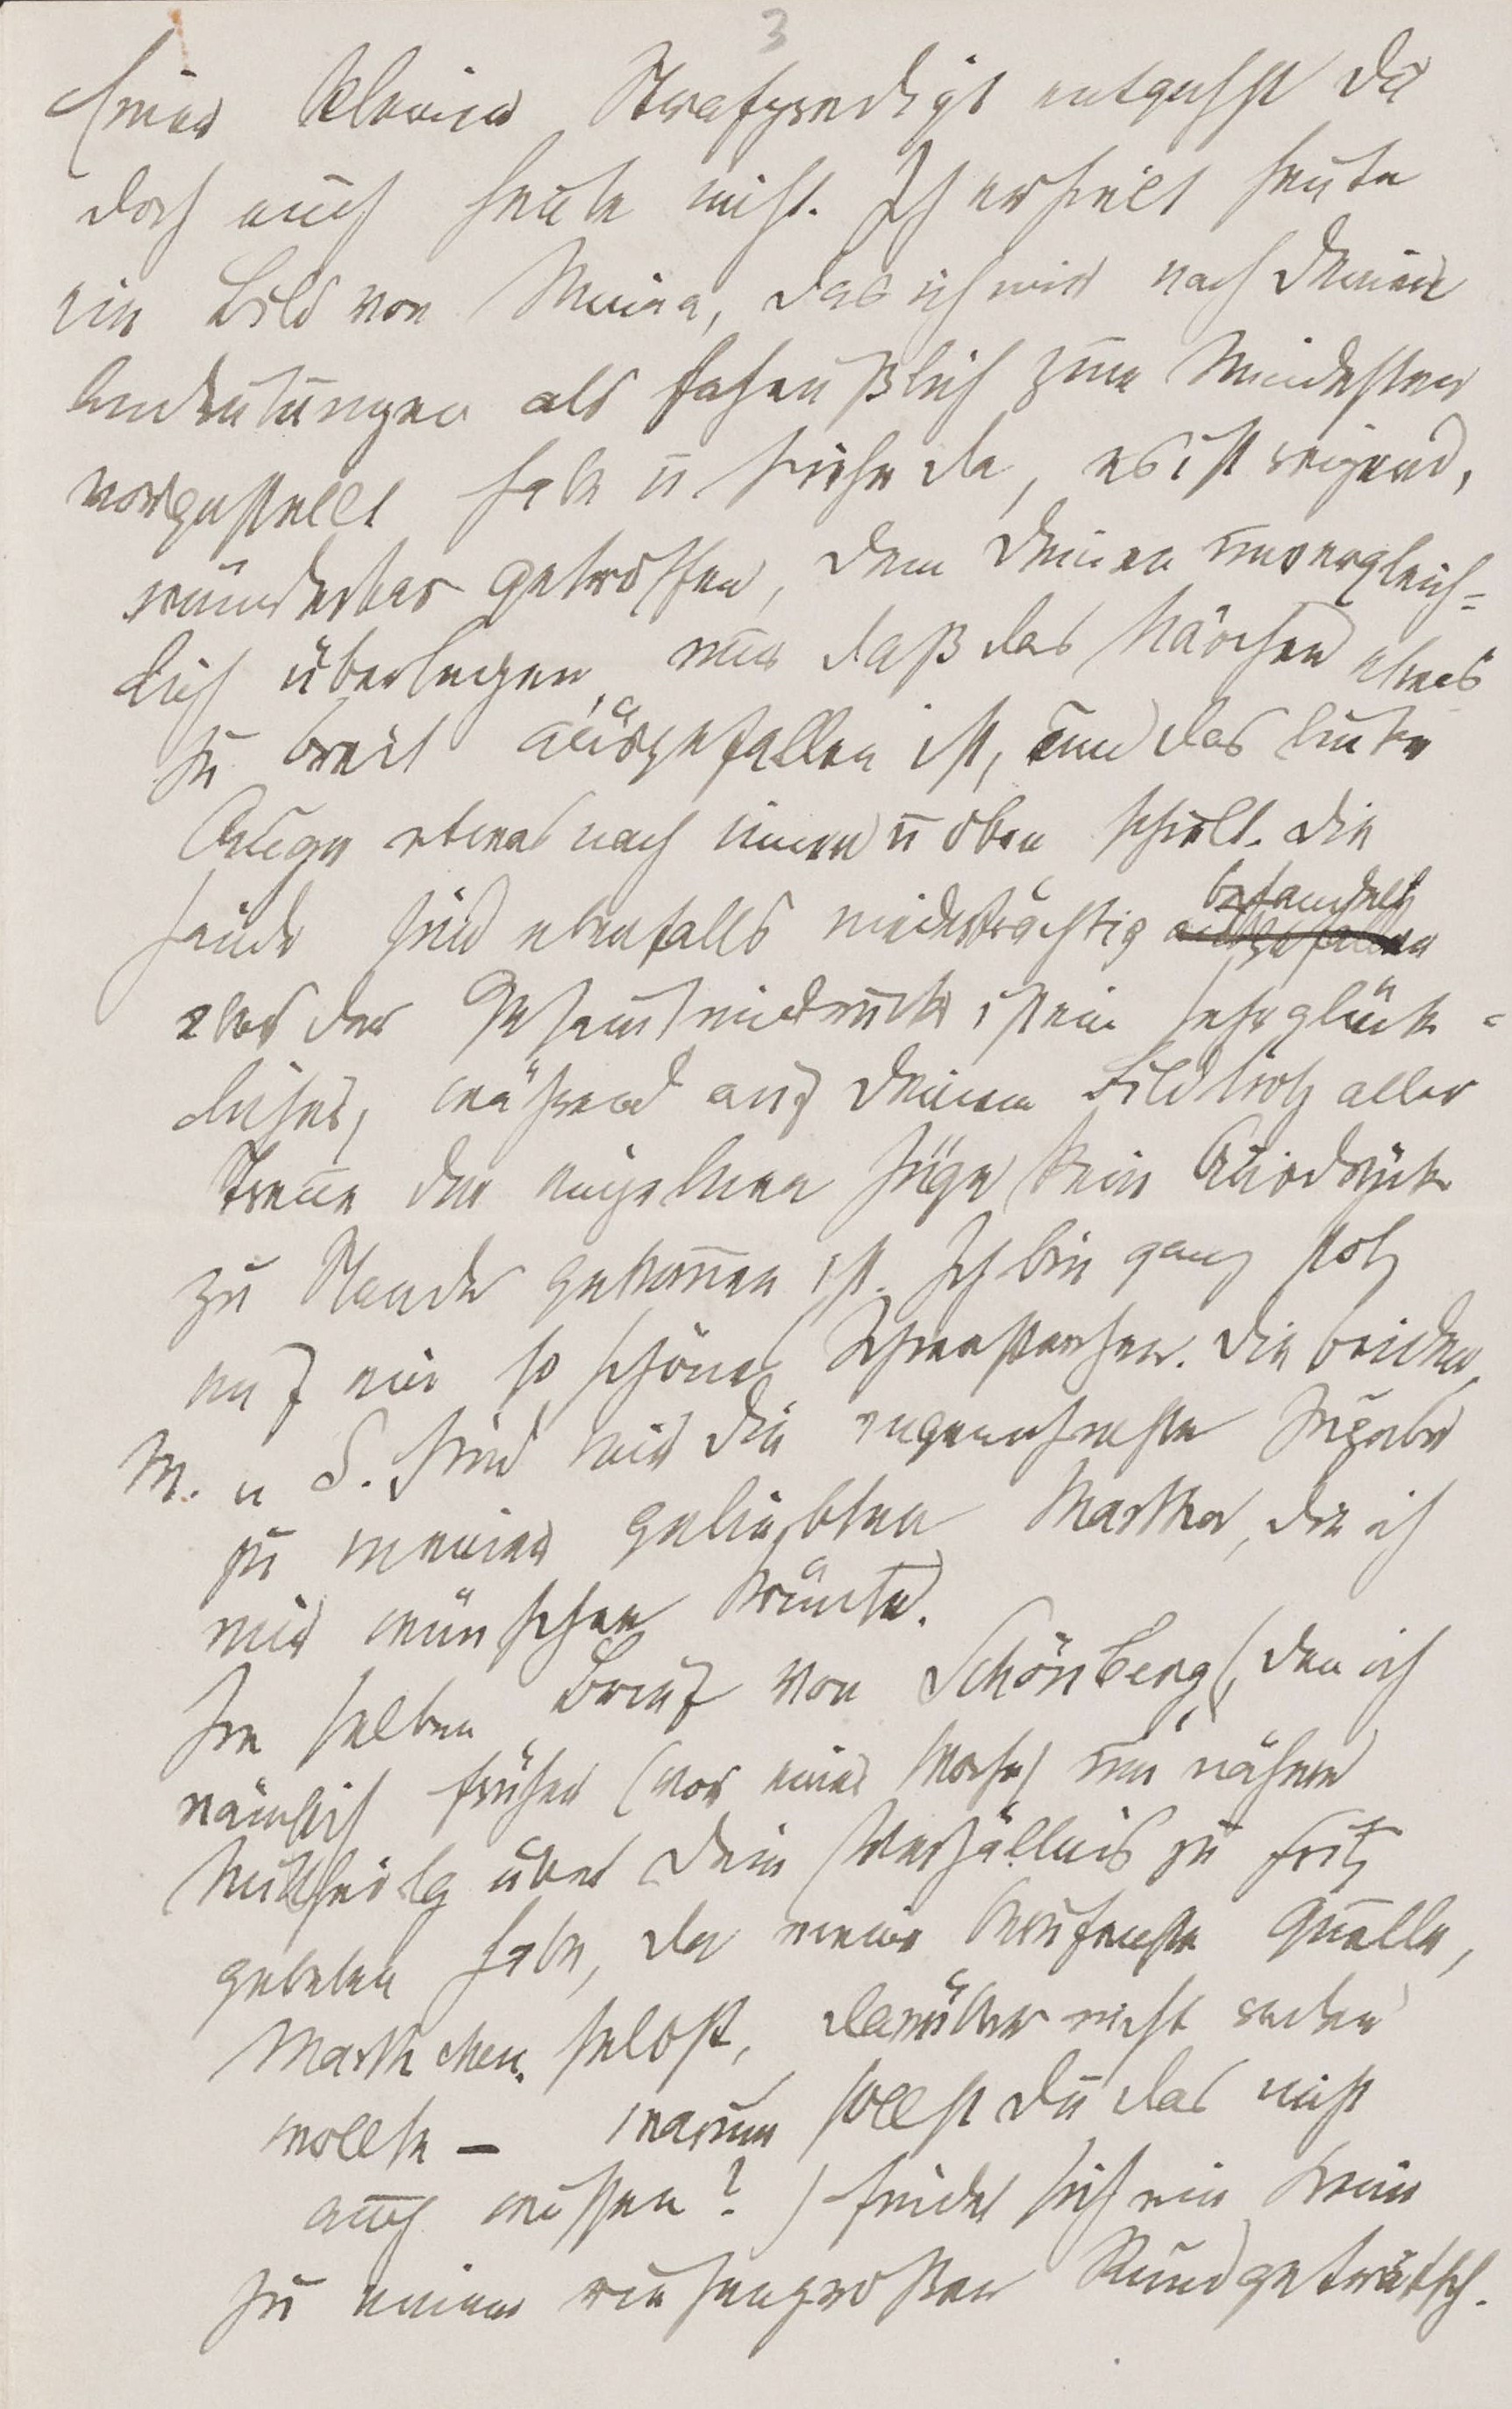 3
Einer kleinen Strafpredigt entgehst Du
doch auch heute nicht. Ich erhielt heute
ein Bild von Minna, das ich mir nach Deinen
Andeutungen als scheußlich zum Mindesten
vorgestellt habe u siehe da, es ist reizend,
wunderbar getroffen, dem Deinen unvergleich-
lich überlegen, nur daß das Näschen etwas
zu breit ausgefallen ist, und das linke
Auge etwas nach innen u oben schielt. Die
Hände sind ebenfalls niederträchtig behandelt
aber der Gesamteindruck ist ein sehr glück-
licher, während auf Deinem Bild trotz aller
Treue der einzelnen Züge kein Ausdruck
zu Stande gekommen ist. Ich bin ganz stolz
auf ein so schönes Schwesterchen. Die beiden,
M. u S. sind mir die angenehmste Zugabe
zu meiner geliebten Martha, die ich
mir wünschen könnte.
Im selben Brief von Schönberg, (den ich
nämlich früher (vor einer Woche) um nähere
Mittheilg über Dein Verhältnis zu Fritz
gebeten habe, da meine berufenste Quelle,
Marthchen selbst, darüber nicht reden
wollte – warum sollst Du das nicht
auch wissen?) findet sich ein Keim
zu einem riesengroßen Mundgetratsch.